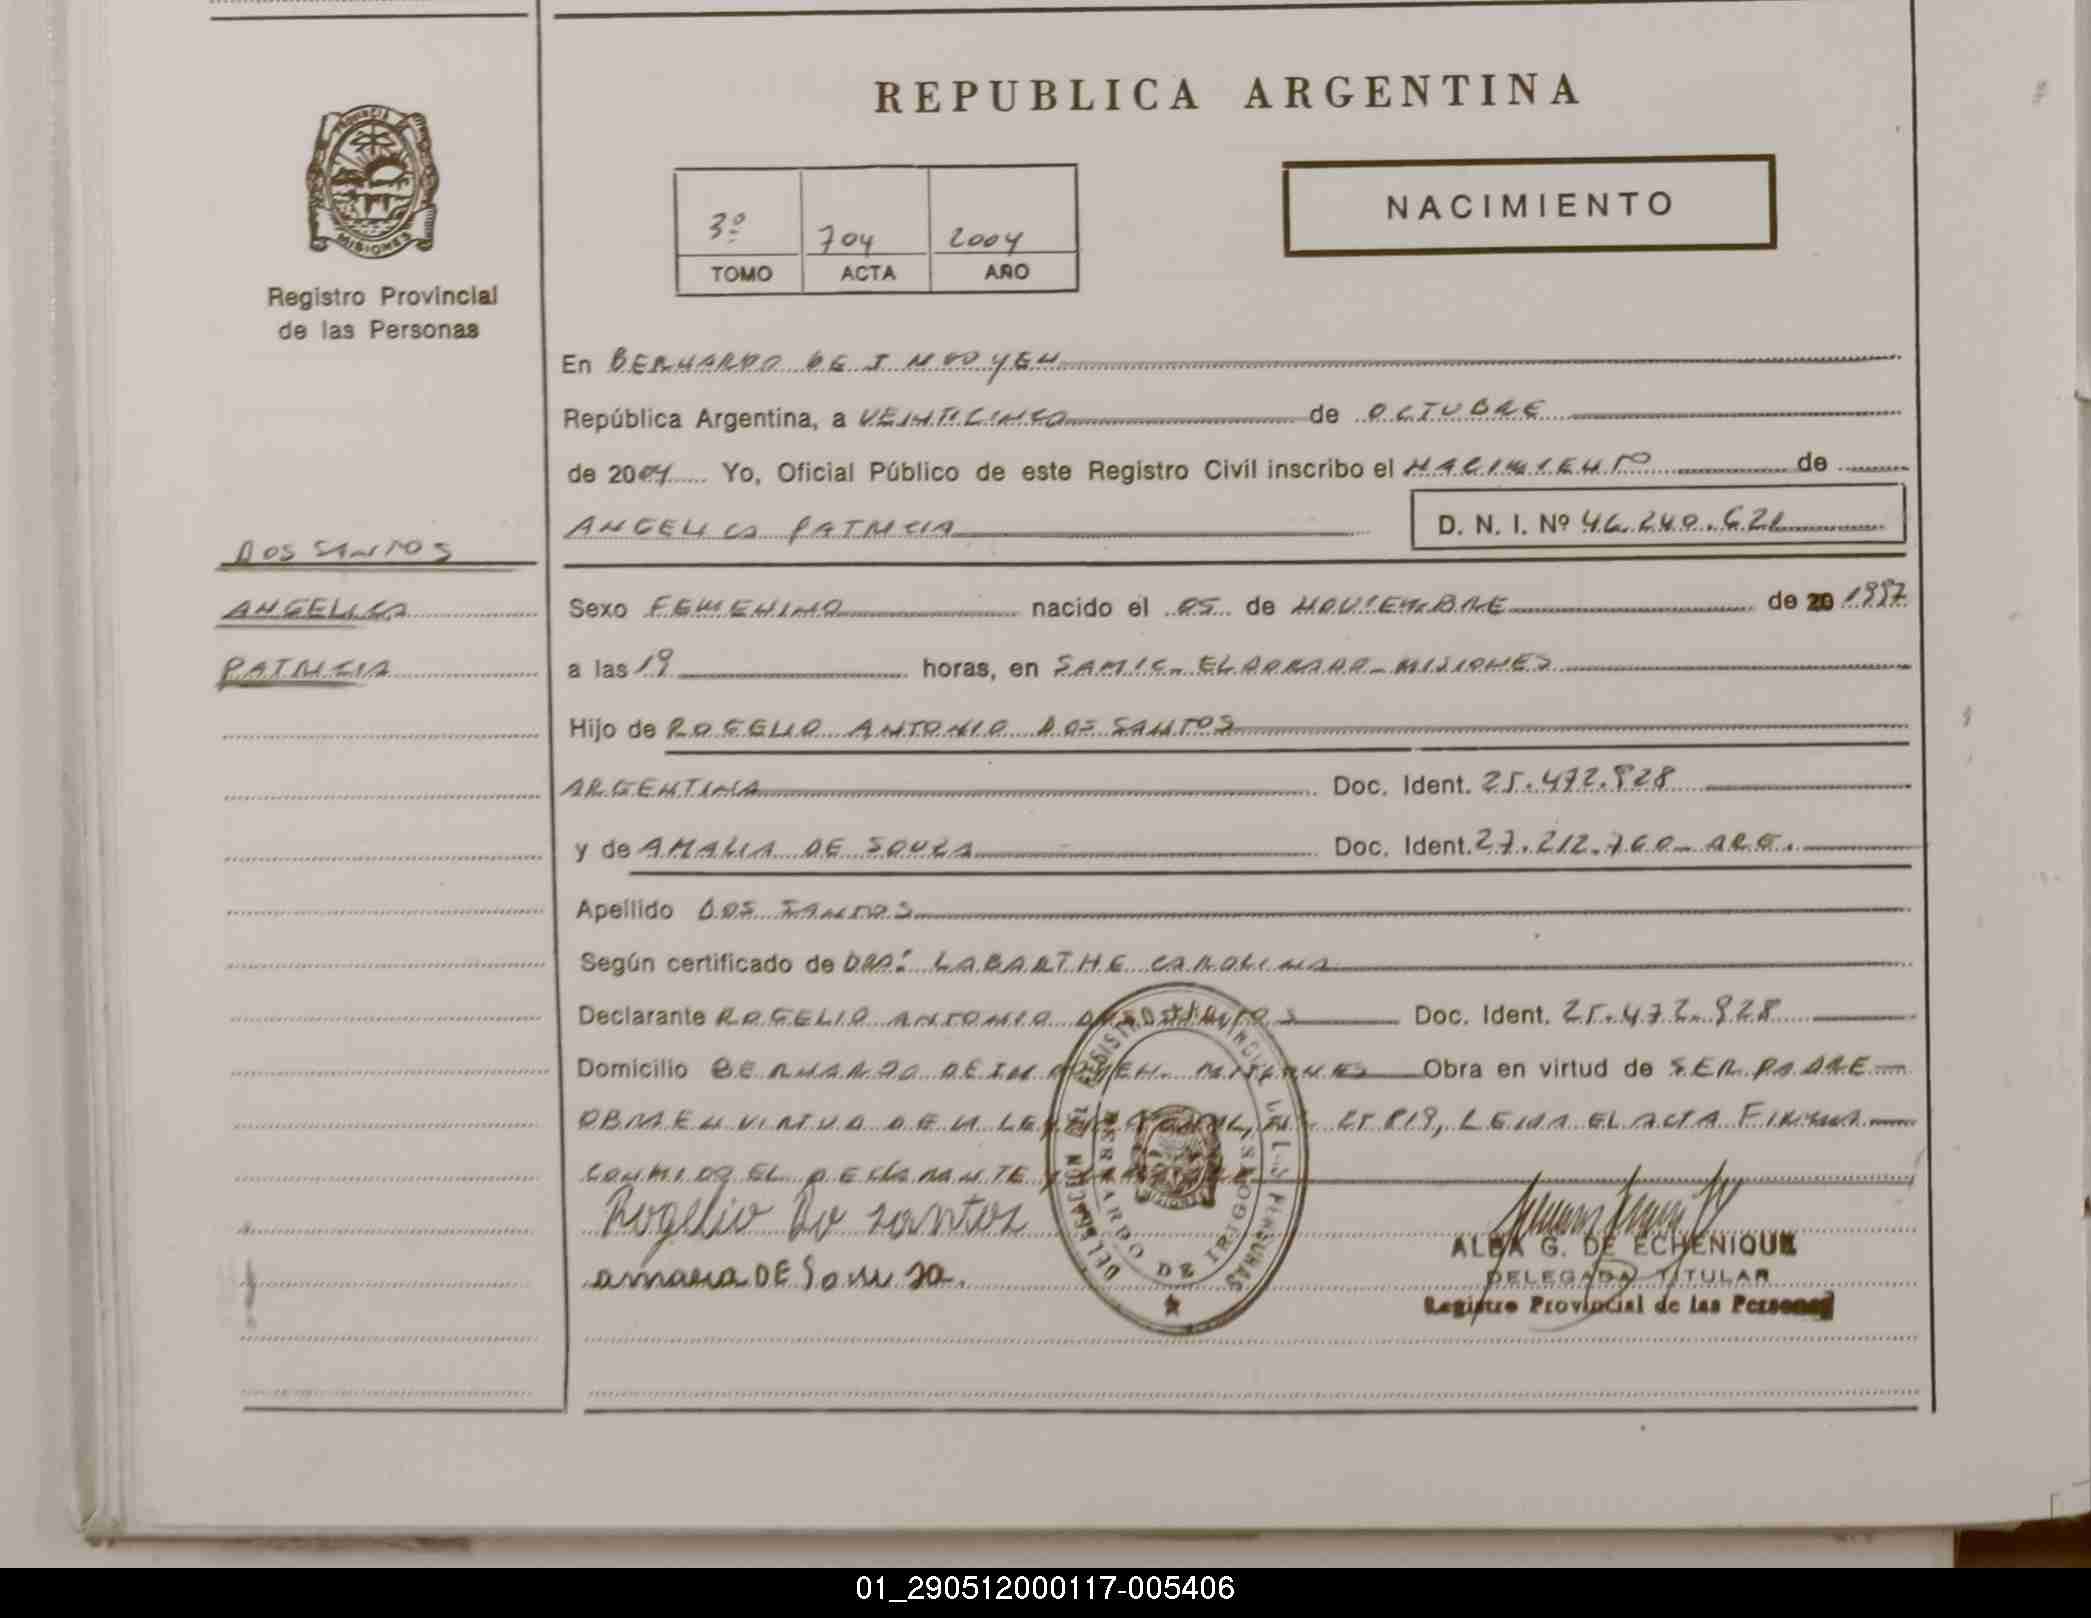 REPUBLICA ARGENTINA
PROVINCIA DE
MISIONES
Registro Provincial
de las Personas
NACIMIENTO
3º 704 2004
TOMO ACTA AÑO
En BERNARDO DE IRIGOYEN
República Argentina, a VEINTICINCO de OCTUBRE
de 2004 Yo, Oficial Público de este Registro Civil inscribo el NACIMIENTO de
ANGELICA PATRICIA D. N. I. Nº 46.240.622
DOS SANTOS
ANGELICA
PATRICIA
Sexo FEMENINO nacido el 05 de NOVIEMBRE de 20 1997
a las 19 horas, en SAMIC - ELDORADO - MISIONES
Hijo de ROGELIO ANTONIO DOS SANTOS
ARGENTINA Doc. Ident. 25.472.928
y de AMALIA DE SOUZA Doc. Ident. 27.212.760 - ARG.
Apellido DOS SANTOS
Según certificado de DRA: LABARTHE CAROLINA
Declarante ROGELIO ANTONIO DOS SANTOS Doc. Ident. 25.472.928
Domicilio BERNARDO DE IRIGOYEN. MISIONES Obra en virtud de SER PADRE
OBRA EN VIRTUD DE LA LEY 25819, LEIDA EL ACTA FIRMA
CONMIGO EL DECLARANTE
Rogelio Do santos
amalia DE Souza.
DELEGACION DEL REGISTRO PROVINCIAL DE LAS PERSONAS
BERNARDO DE IRIGOYEN
MISIONES
ALBA G. DE ECHENIQUE
DELEGADA TITULAR
Registro Provincial de las Personas
01_290512000117-005406